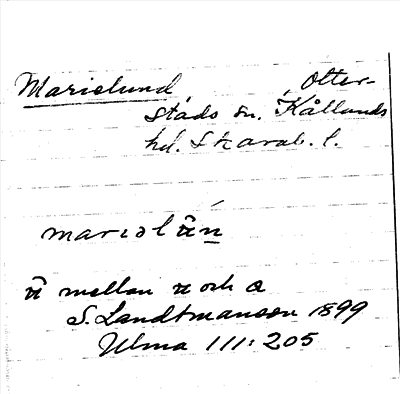 Marielund, Otter-
stads sn. Kållands
hd. Skarab. l.
mariəl
mellan och
S. Landtmanson 1899
Ulma 111:205